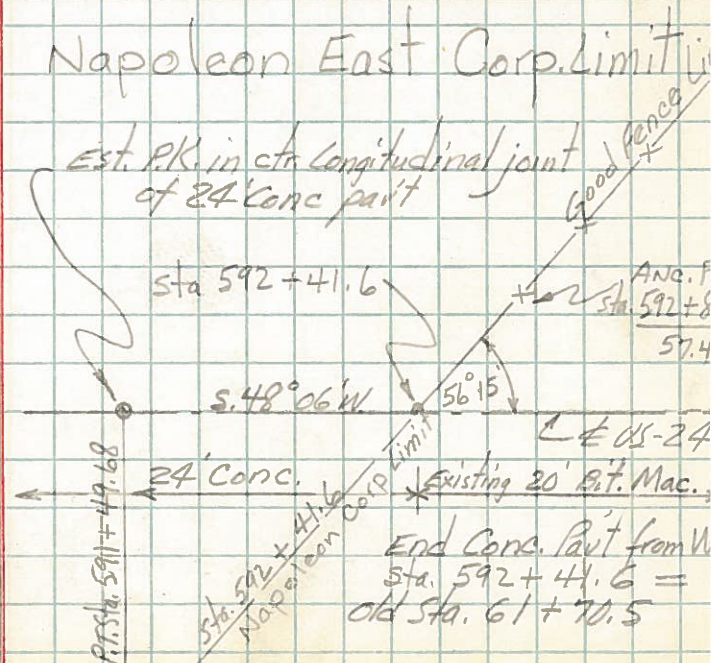 Napoleon East Corp. Limit Li
Est. P.K. in ctr. Longitudinal joint
of 24' Conc pav't
Good Fence
sta 592+41.6
Anc. P
sta. 592+8
57.4
S. 48° 06' W.
56° 15'
℄ US-24
24' Conc.
Existing 20' Bit. Mac.
P.T. Sta. 591+49.68
Sta. 592+41.6
Napoleon Corp Limit
End Conc. Pav't from W
Sta. 592+41.6 =
old Sta. 61+70.5